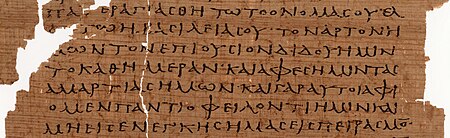 ΠΑΤΕΡΑΓΙΑϹΘΗΤΩΤΟΟΝΟΜΑϹΟΥΕΛ
ΤΩΗΒΑϹΙΛΕΙΑϹΟΥ·ΤΟΝΑΡΤΟΝΗ
ΜΩΝΤΟΝΕΠΙΟΥϹΙΟΝΔΙΔΟΥΗΜΙΝ
ΤΟΚΑΘΗΜΕΡΑΝΚΑΙΑΦΕϹΗΜΙΝΤΑϹ
ΑΜΑΡΤΙΑϹΗΜΩΝΚΑΙΓΑΡΑΥΤΟΙΑΦΙ
ΟΜΕΝΠΑΝΤΙΟΦΕΙΛΟΝΤΙΗΜΙΝΚΑΙ
ΜΗΕΙϹΕΝΕΓΚΗϹΗΜΑϹΕΙϹΠΕΙΡΑϹΜΟ